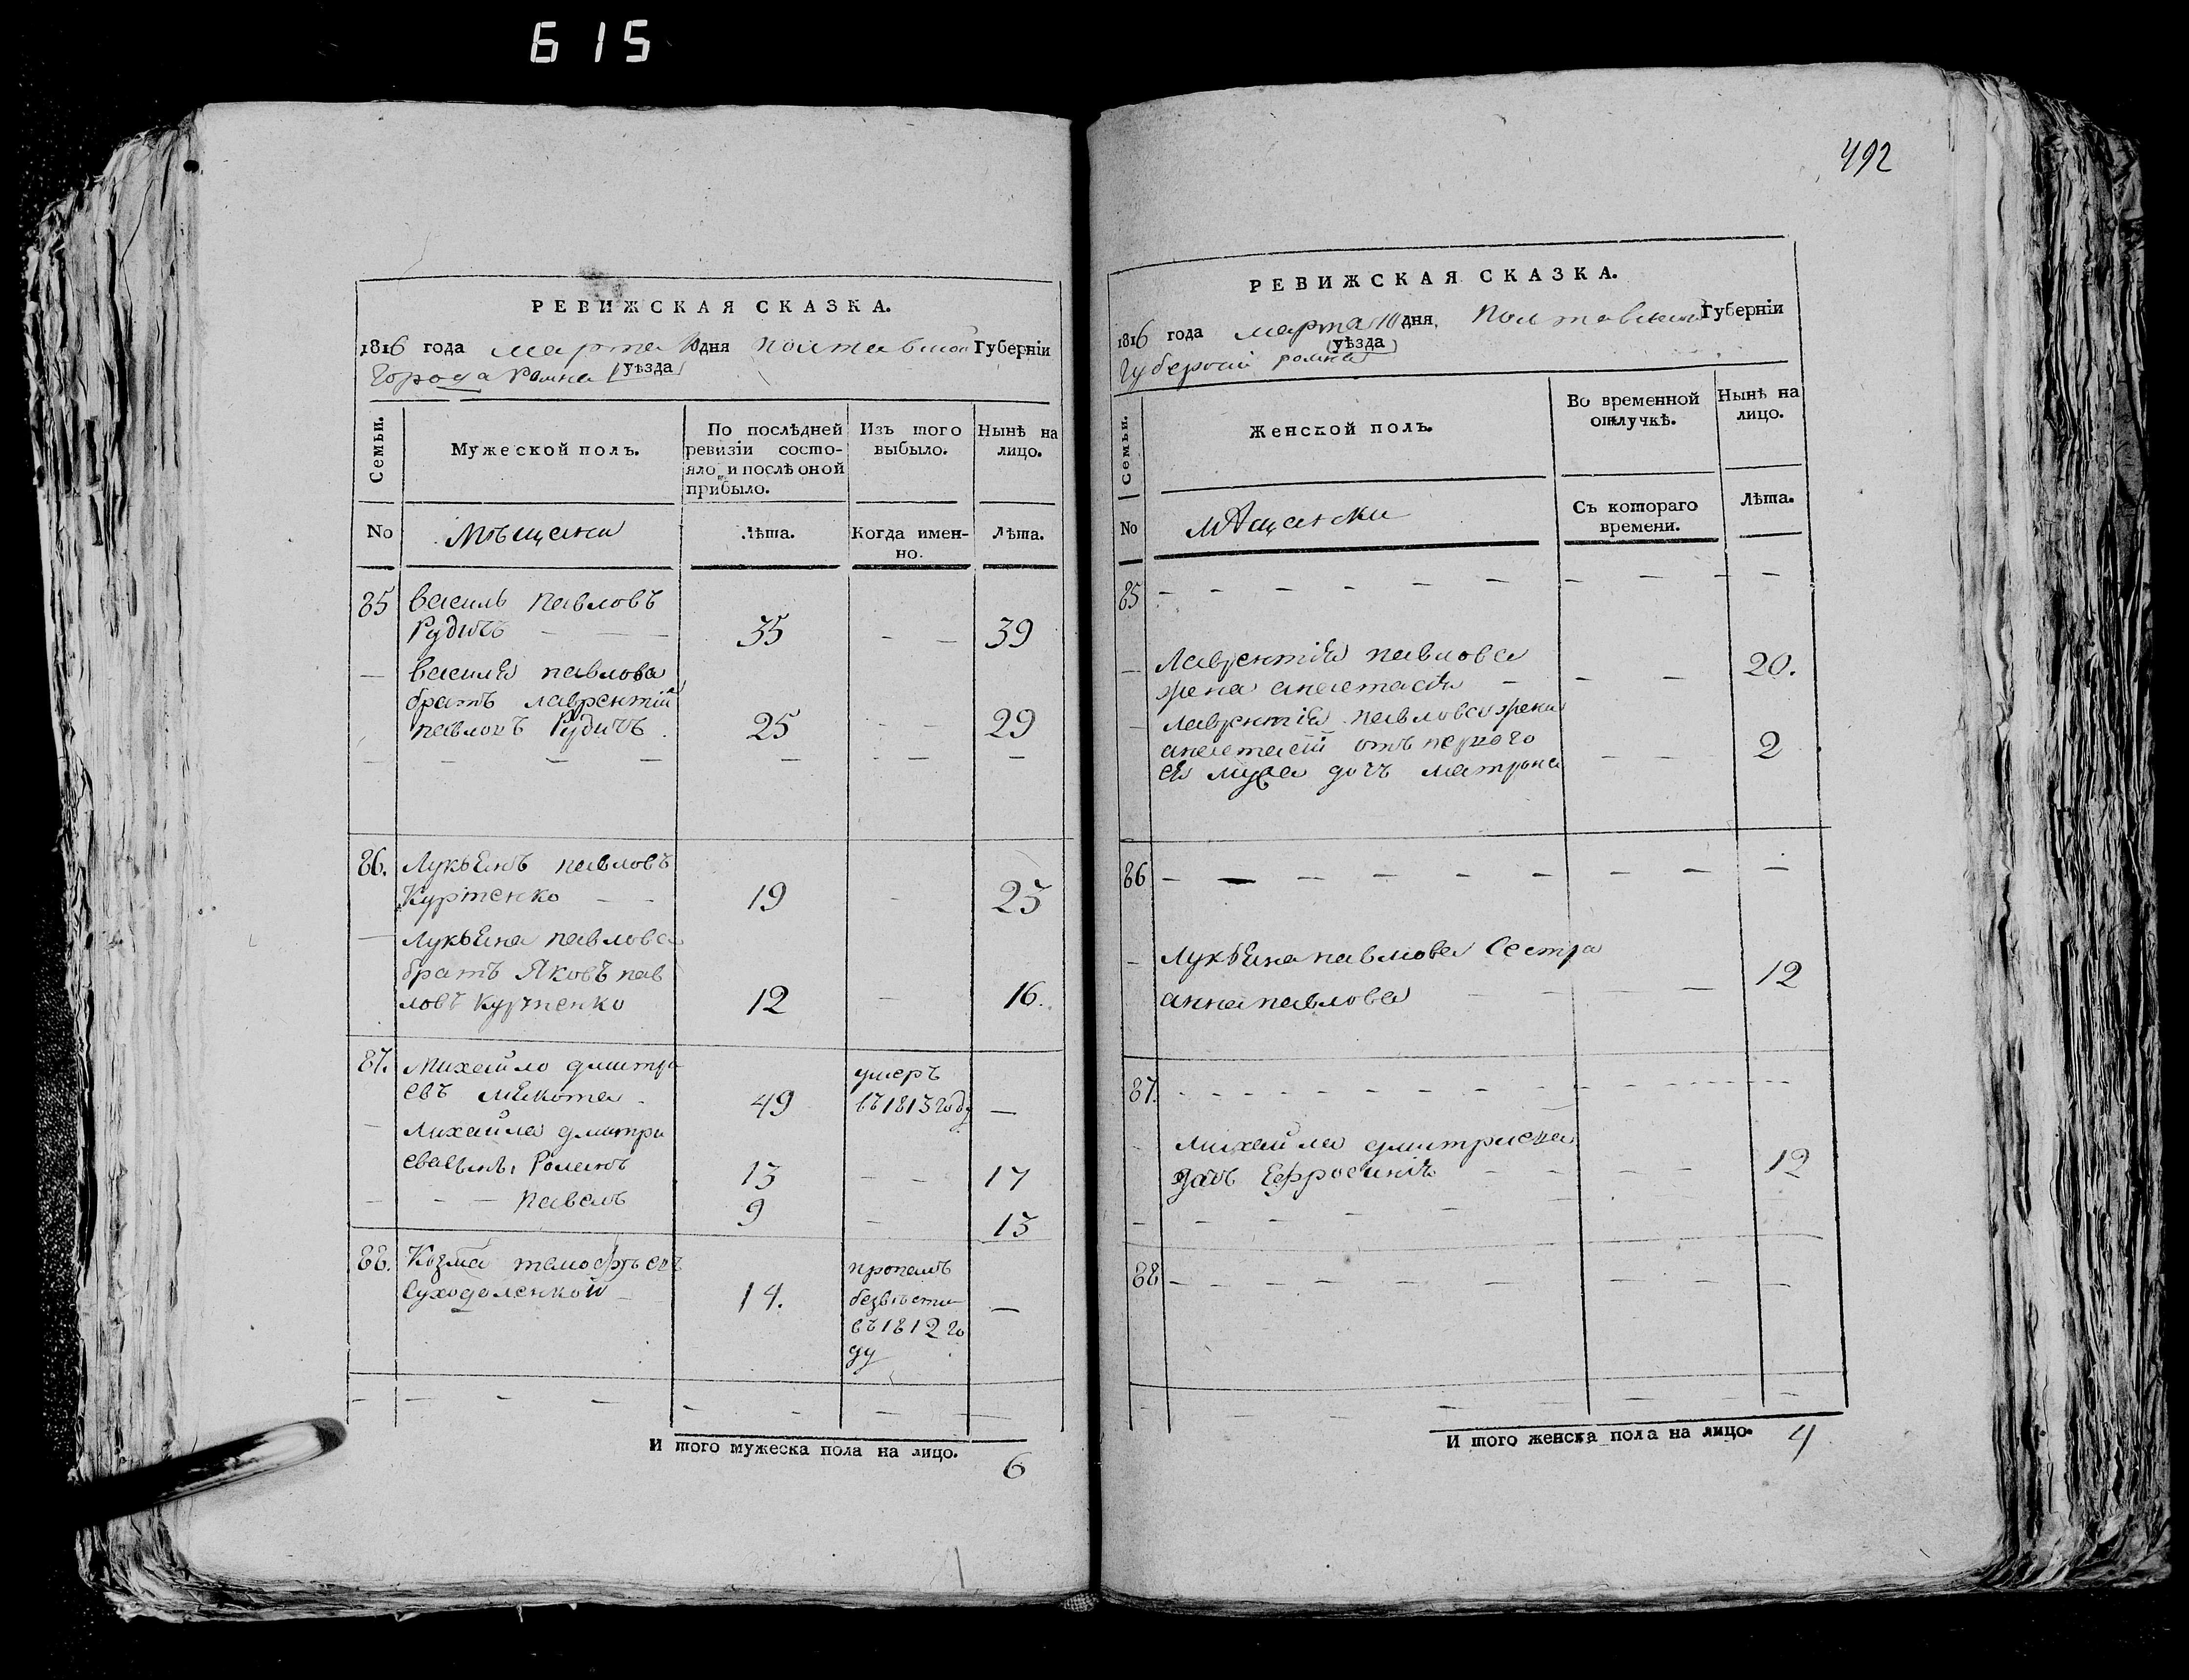 615
РЕВИЖСКАЯ СКАЗКА.
1816 года марта 10 дня полтавской Губерніи
Города Ромна (уѣзда)
Семьи.
Мужеской полъ.
По послѣдней
ревизіи состо-
яло и послѣ оной
прибыло.
Изъ того
выбыло.
Нынѣ на
лицо.
No
Мѣщани
Лѣта.
Когда имен-
но.
Лѣта.
85 Василь Павловъ
Рудичъ — — 35 — — 39
— Василя павлова
братъ лаврентій
павловъ Рудичъ 25 — — 29
— — — — — — — —
86. Лукьянъ павловъ
Куртенко — — 19 — 23
— Лукьяна павлова
братъ Яковъ пав
ловъ куртенко 12 — 16.
87. Михайло дмитри
евъ Мякота 49 умеръ
въ 1813 году —
— Михайла дмитри
ева сынъ, Романъ 13 — — 17
— — — павелъ 9 — 13
88. Козма тимофѣевъ
Суходоленкой — 14. пропалъ
безвѣсти —
въ 1812 го
ду
— — — — — — — —
И того мужеска пола на лицо. 6
492
РЕВИЖСКАЯ СКАЗКА.
1816 года марта 10 дня, Полтавской Губерніи
Губерніи ромна (уѣзда)
Семьи.
Женской полъ.
Во временной
отлучкѣ.
Нынѣ на
лицо.
No
мѣщански
Съ котораго
времени.
Лѣта.
85 — — — — — — — — —
— Лаврентія павлова
жена анастасія — — — 20.
— лаврентія павлова жены
анастасіи отъ перваго
ея мужа дочь матрона — — 2
86 — — — — — — — — —
— Лукьяна павлова Сестра
анна павлова — — — — 12
87. — — — — — — — — —
— михайла дмитриева
дочь Ефросинія — — — — 12
— — — — —
88 — — — — — — — — —
— — — — — —
И того женска пола на лицо. 4